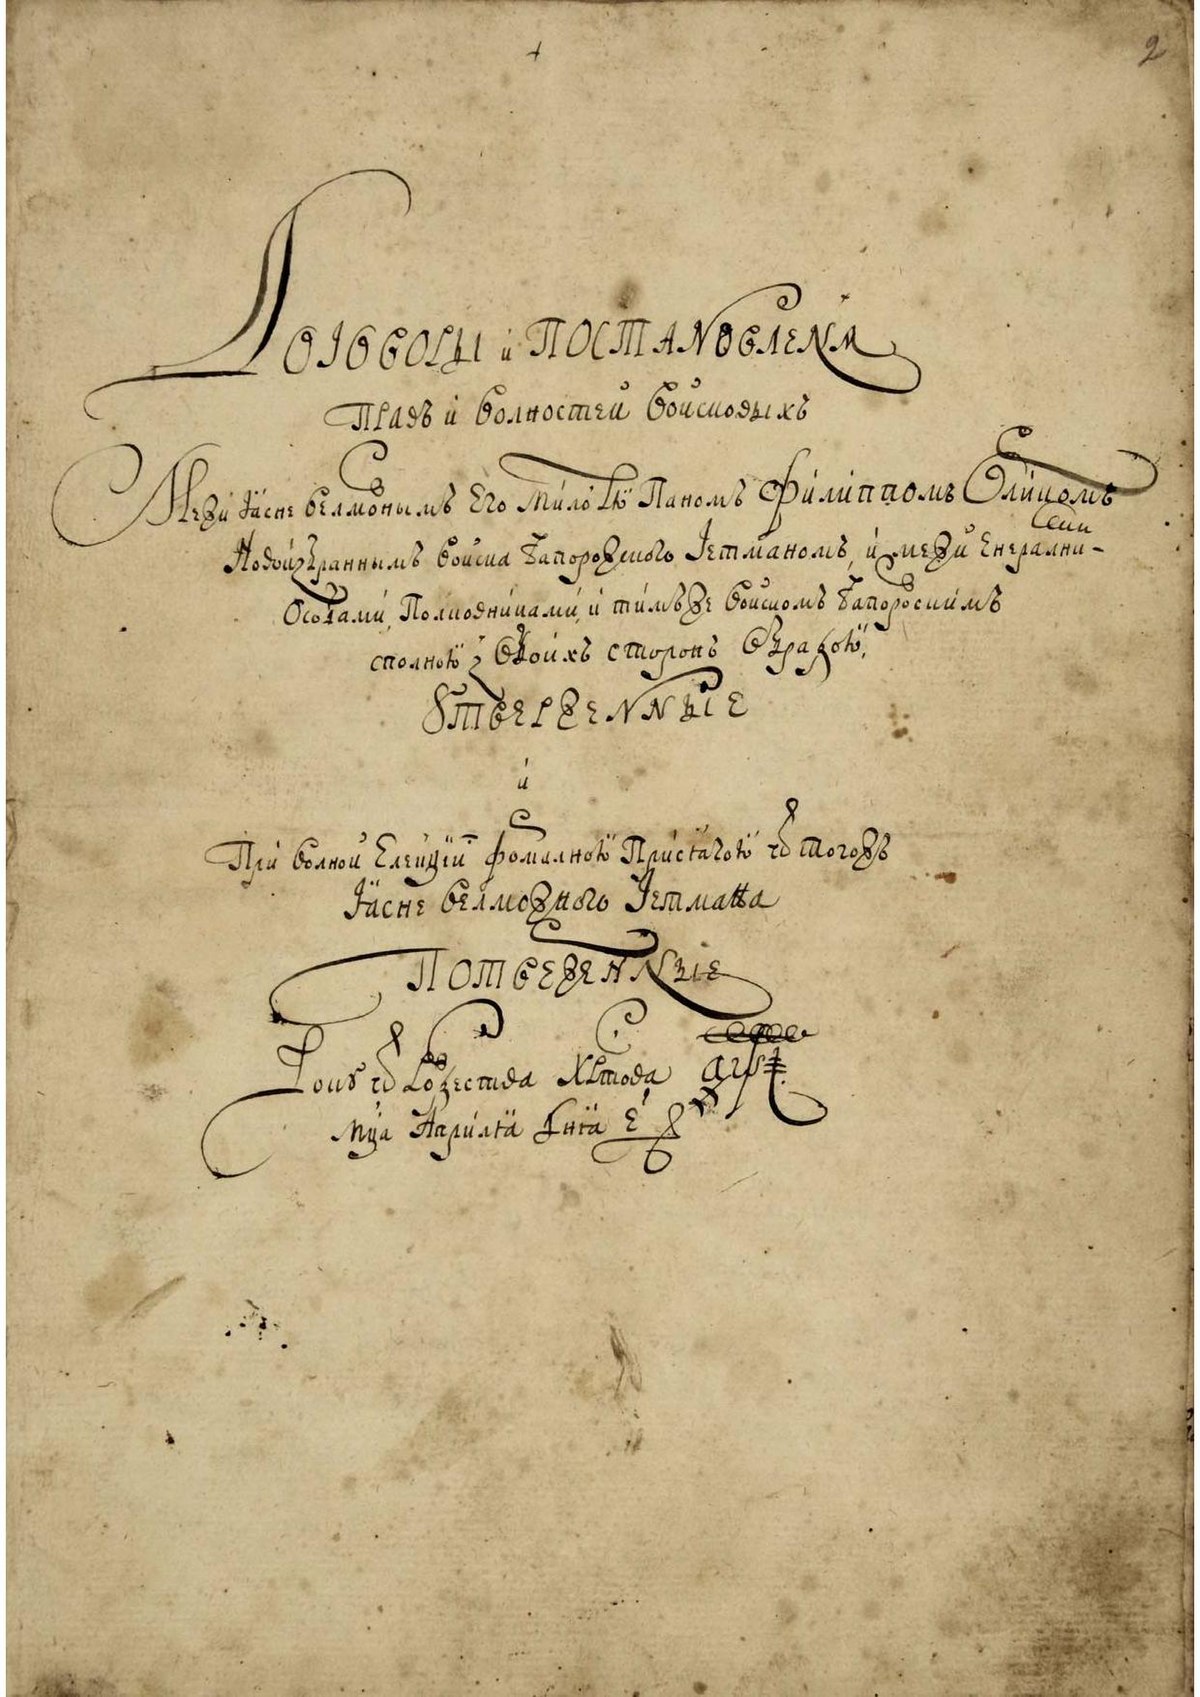 2
Договоры и Постановленꙗ
Правъ и волностей войсковыхъ
Межи Ӕсне велможнымъ Его милостю Паномъ Филиппомъ Ѡрликомъ
Новоизбраннымъ войска Запорожского Гетманомъ, и межи Енералними
Особами, Полковниками, и тимъже войскомъ Запорозскимъ
сполною з обоихъ сторонъ обрадою,
Ѹтверженные
и
При волной Елекціи формалною Присягою ѿ тогожъ
Ӕсне велможного Гетмана
Потверженные
Року ѿ Рожества Христова
мца Априлїа дня є҃